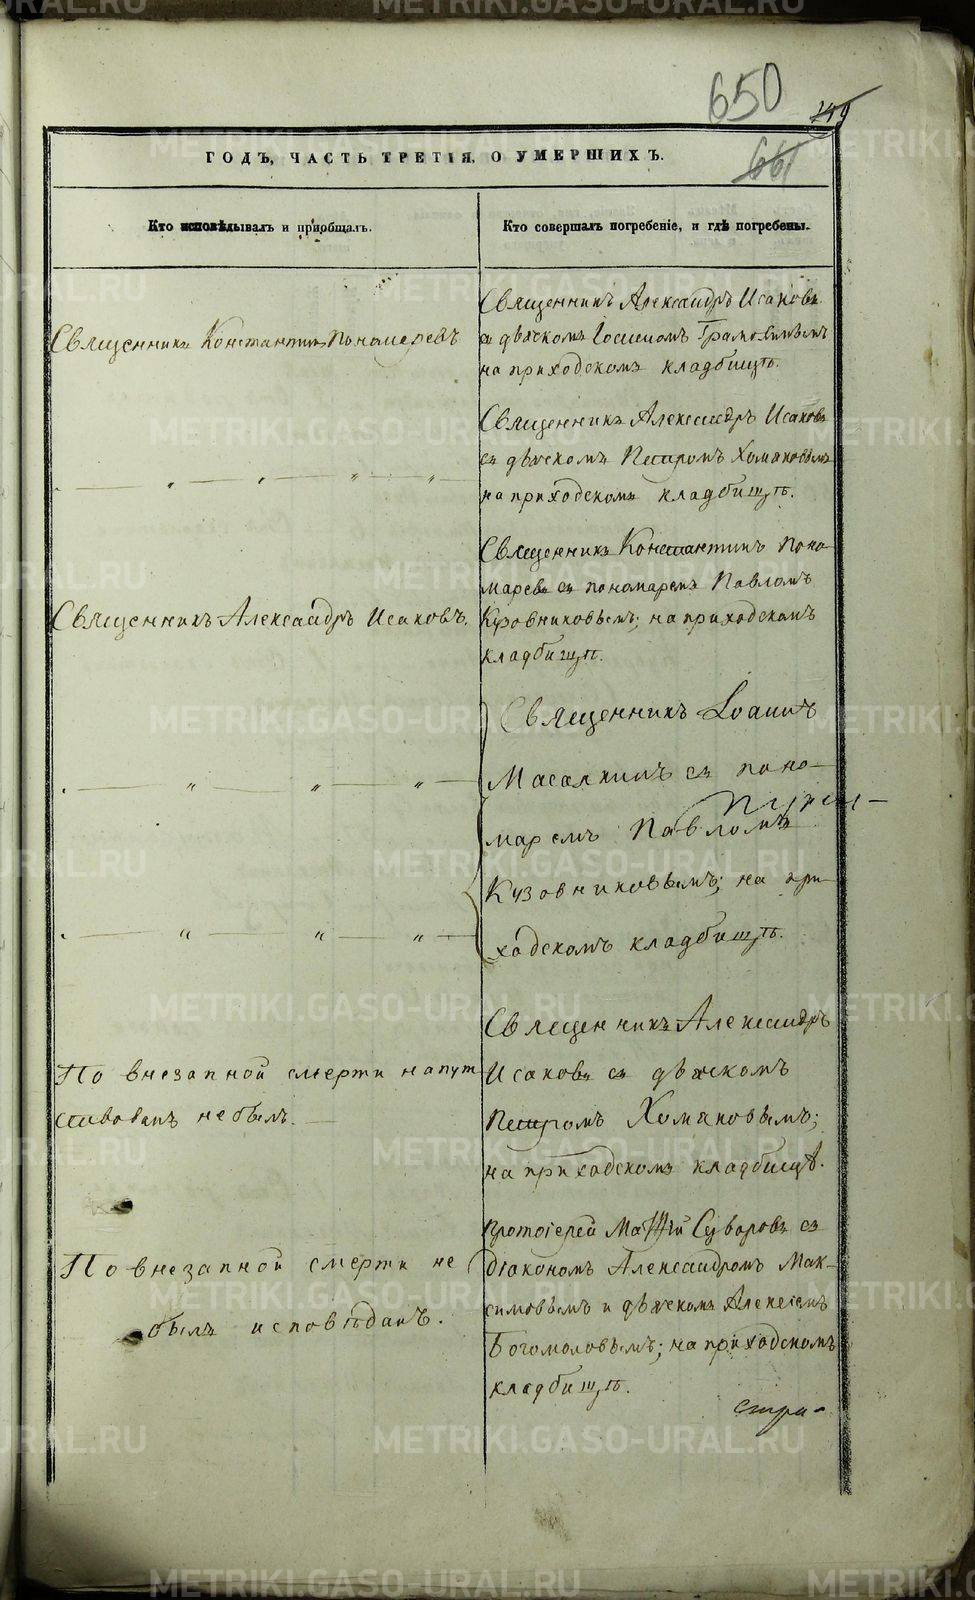 650
149
661
ГОДЪ, ЧАСТЬ ТРЕТІЯ, О УМЕРШИХЪ.
Кто исповѣдывалъ и пріобщалъ.
Кто совершалъ погребеніе, и гдѣ погребены.
Священникъ Александръ Исаковъ
съ дьячкомъ
на приходскомъ кладбищѣ.
Священникъ Константинъ Пономаревъ
Священникъ Александръ Исаковъ
съ дьячкомъ Петромъ Хомяковымъ
на приходскомъ кладбищѣ.
Священникъ Константинъ Поно-
маревъ съ пономаремъ Павломъ
Кузовниковымъ; на приходскомъ
кладбищѣ.
Священникъ Александръ Исаковъ.
Священникъ Іоаннъ
Масалкинъ съ поно-
маремъ Павломъ
Кузовниковымъ; на при-
ходскомъ кладбищѣ.
Священникъ Александръ
Исаковъ съ дьячкомъ
Петромъ Хомяковымъ;
на приходскомъ кладбищѣ.
По внезапной смерти напут
ствованъ не былъ.
Протоіерей Матѳій Суворовъ съ
діакономъ Александромъ Мак-
симовымъ и дьячкомъ Алексіемъ
Богомоловымъ; на приходскомъ
кладбищѣ.
По внезапной смерти не
былъ исповѣданъ.
METRIKI.GASO-URAL.RU